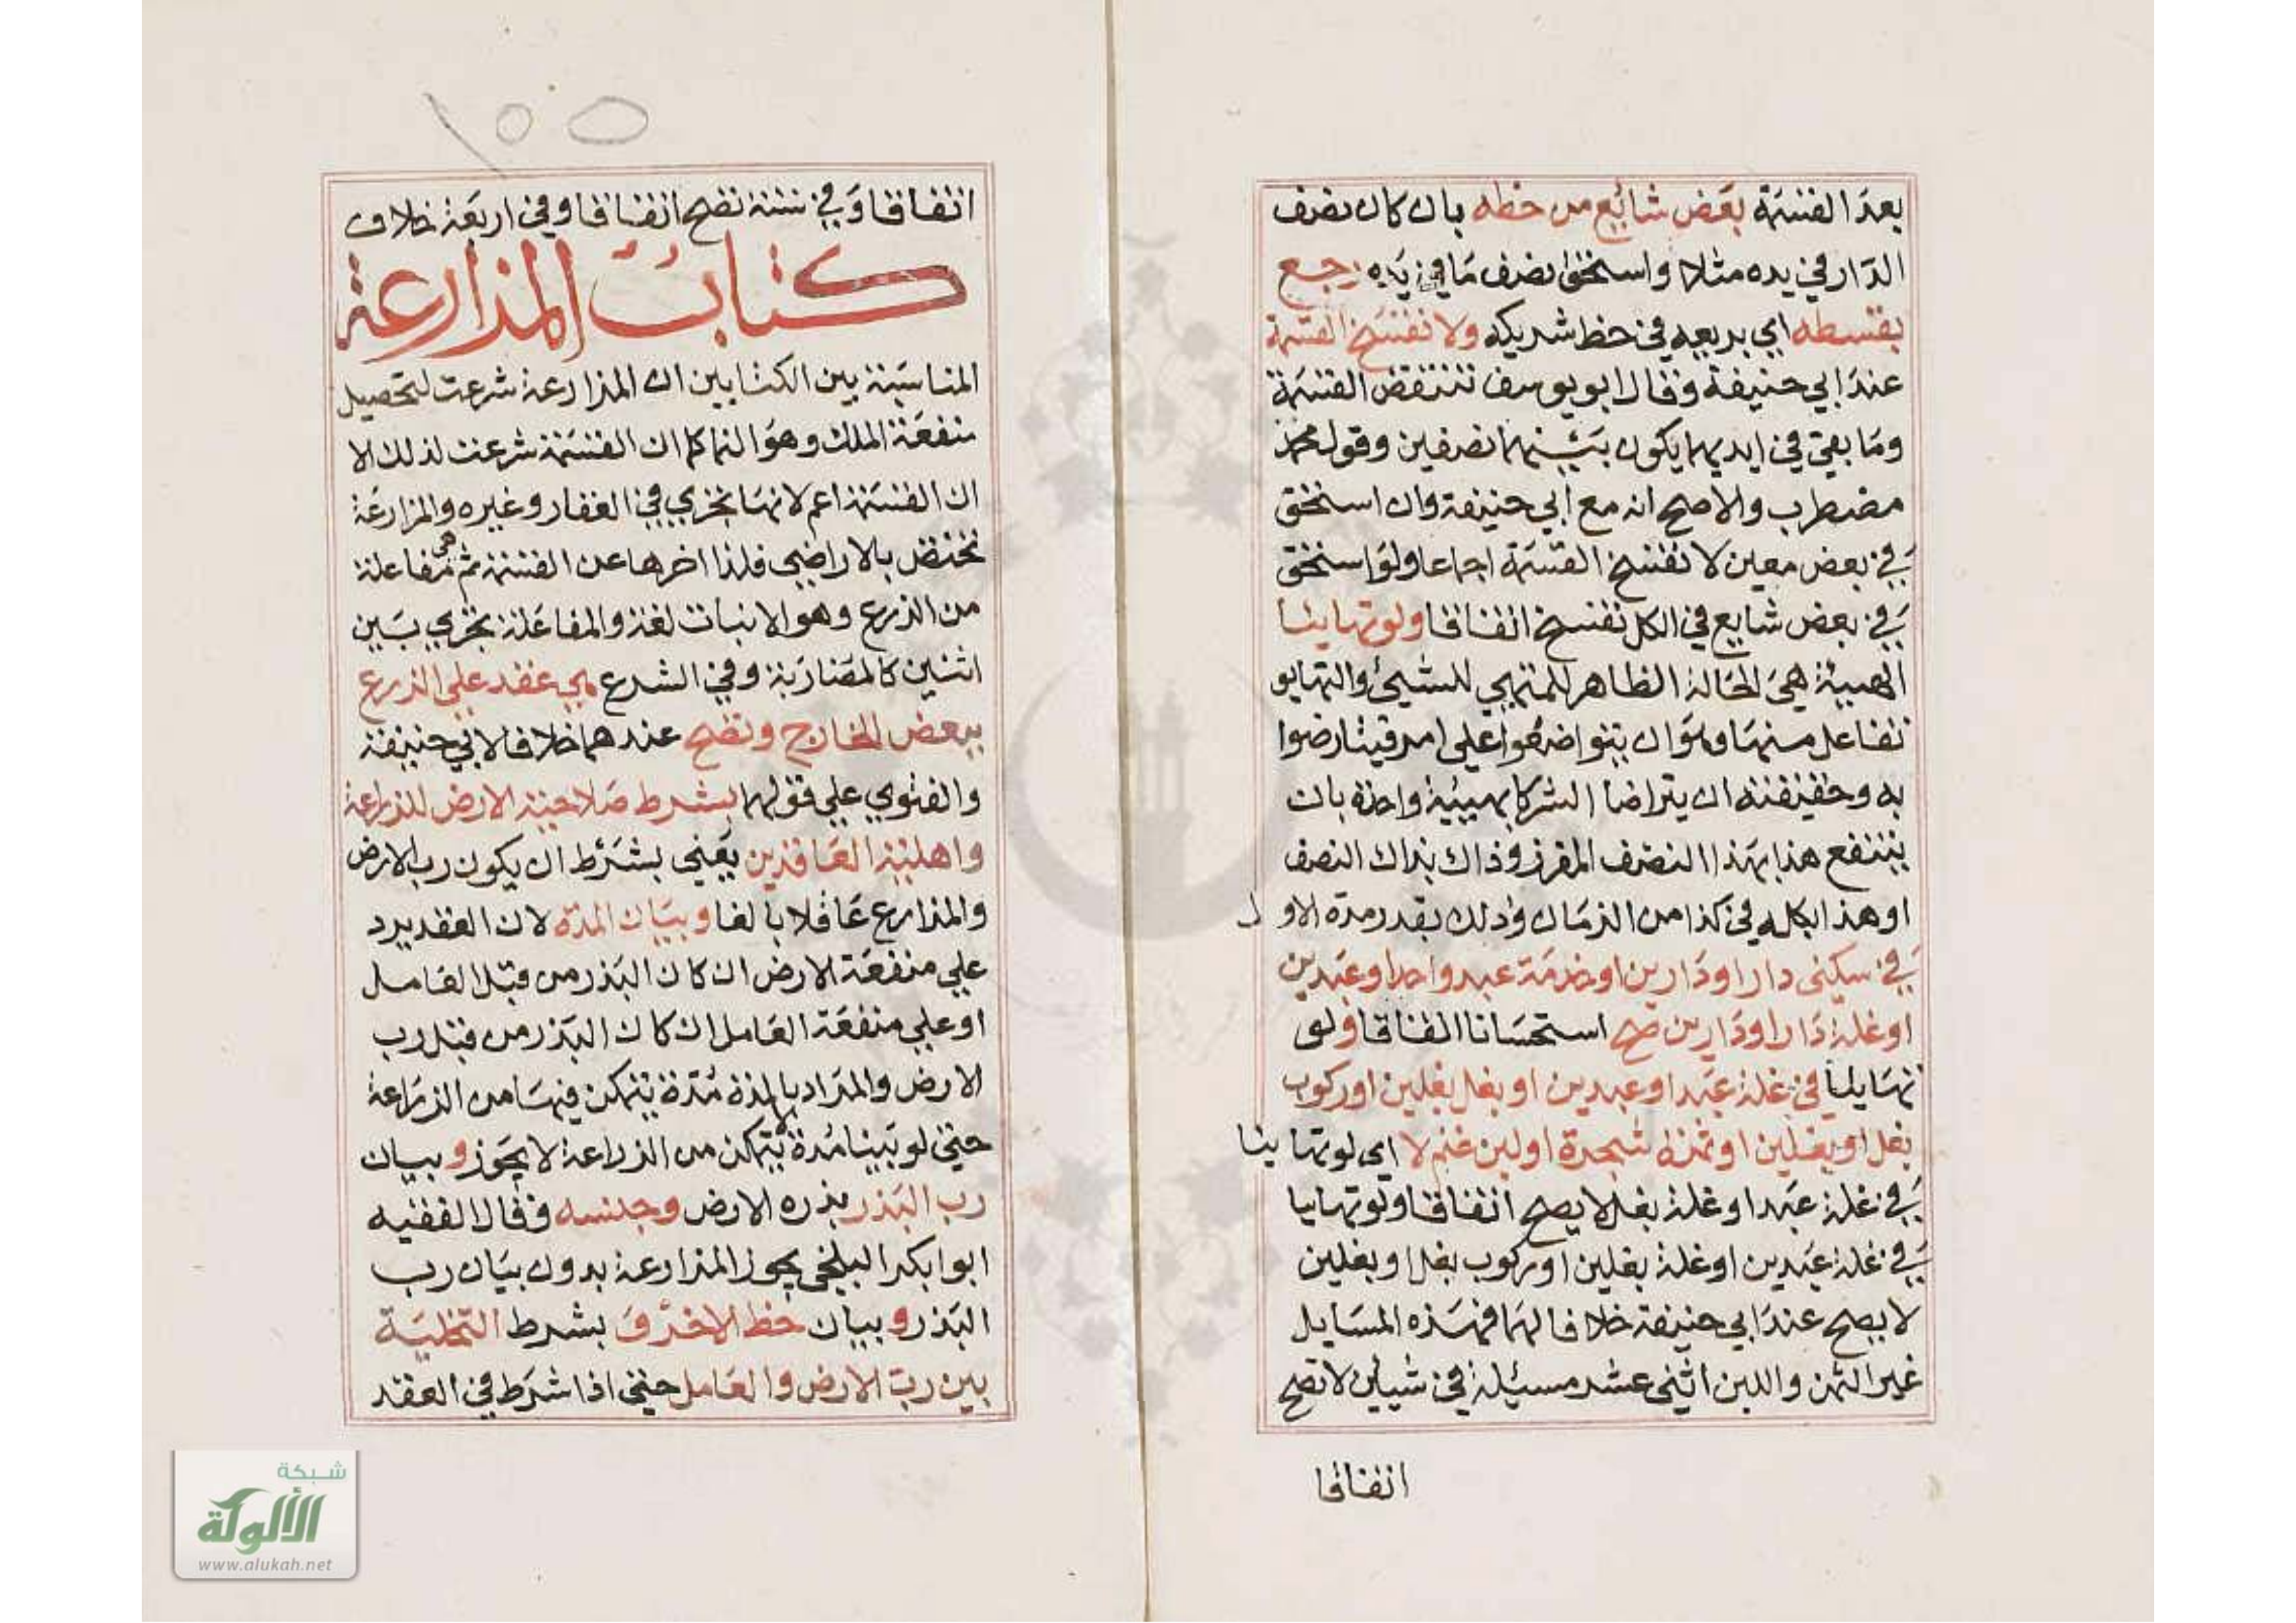 بعد القسمة بعض شائع من حظه بان كان نصف
الدار في يده مثلا واستحق نصف ما في يده رجع
بقسطه اي بربعه في حظ شريكه ولا تفسخ القسمة
عند ابي حنيفة وقال ابو يوسف تنتقض القسمة
وما بقي في ايديهما يكون بينهما نصفين وقول محمد
مضطرب والاصح انه مع ابي حنيفة وان استحق
في بعض معين لا تفسخ القسمة اجماعا ولو استحق
في بعض شايع في الكل تفسخ اتفاقا ولو تهايئا
الهيئة هي الحالة الظاهر للمتهيي للشيئ والتهايو
تفاعل منها وهو ان يتواضعوا على امر فيتارضوا
به وحقيقته ان يتراضا الشركا بهيئة واحدة بان
ينتفع هذا بهذا النصف المفرز وذاك بذاك النصف
او هذا بكله في كذا من الزمان وذلك بقدر مدة الاول
في سكنى دار او دارين او خدمة عبد واحد او عبدين
او غلة دار او دارين صح استحسانا اتفاقا ولو
تهايئا في غلة عبد او عبدين او بغل بغلين او ركوب
بغل او بغلين او ثمرة شجرة او لبن غنم لا اي لو تهايئا
في غلة عبد او غلة بغل لا يصح اتفاقا ولو تهاييا
في غلة عبدين او غلة بغلين او ركوب بغل او بغلين
لا يصح عند ابي حنيفة خلافا لهما فهذه المسايل
غير الثمن واللبن اثنى عشر مسئلة في شيأين لا تصح
اتفاقا
١٥٥
اتفاقا وفي ستة تصح اتفاقا وفي اربعة خلاف
كتاب المزارعة
المناسبة بين الكتابين ان المزارعة شرعت لتحصيل
منفعة الملك وهو النما كما ان القسمة شرعت لذلك الا
ان القسمة اعم لانها تجري في العقار وغيره والمزارعة
تختص بالاراضي فلذا اخرها عن القسمة ثم هي مفاعلة
من الزرع وهو الانبات لغة والمفاعلة تجري بين
اثنين كالمضاربة وفي الشرع هي عقد على الزرع
ببعض الخارج وتصح عندهما خلافا لابي حنيفة
والفتوي علي قولهما بشرط صلاحية الارض للزراعة
واهلية العاقدين يعني بشرط ان يكون رب الارض
والمزارع عاقلا بالغا وبيان المدة لان العقد يرد
علي منفعة الارض ان كان البذر من قبل العامل
او علي منفعة العامل ان كان البذر من قبل رب
الارض والمراد بالمدة مدة يتمكن فيها من الزراعة
حتى لو بينا مدة لا يتمكن من الزراعة لا يجوز وبيان
رب البذر بذره الارض وجنسه وقال الفقيه
ابو ابكر البلخي يجوز المزارعة بدون بيان رب
البذر وبيان حظ الاخر و بشرط التخلية
بين رب الارض والعامل حتى اذا شرط في العقد
شبكة
الألوكة
www.alukah.net